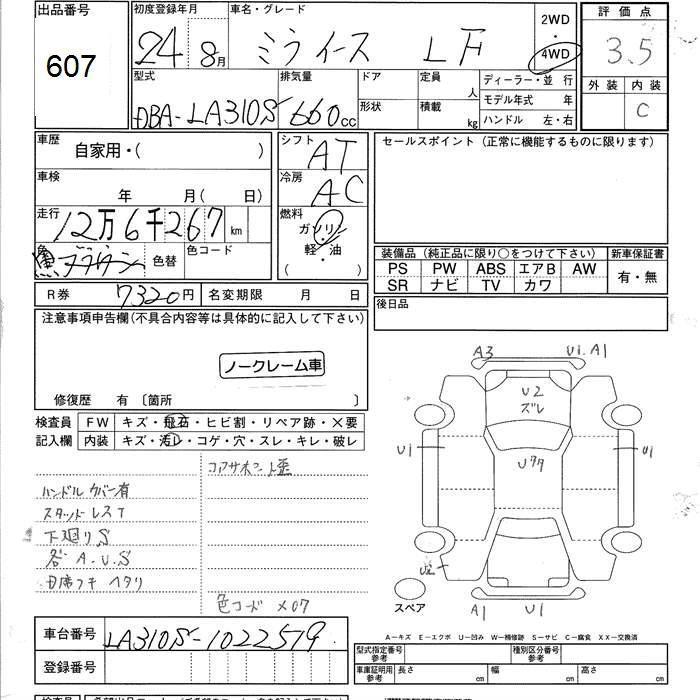 出品番号
607
初度登録年月 車名・グレード
24年 8月 ミライース LF
2WD
・
4WD
評価点
3.5
外装 内装
C
型式 排気量 ドア 定員 人 ディーラー・並行
DBA-LA310S 660cc
形状 積載 kg モデル年式 年
ハンドル 左・右
車歴 自家用・( )
シフト AT
セールスポイント (正常に機能するものに限ります)
車検 年 月( 日)
冷房 AC
走行 12万6千267km
燃料 ガソリン
・
軽・油
( )
色 ブラウン 色替 色コード
装備品 (純正品に限り○をつけて下さい) 新車保証書
PS PW ABS エアB AW 有・無
SR ナビ TV カワ
R券 7320円 名変期限 月 日
後日品
注意事項申告欄(不具合内容等は具体的に記入して下さい)
ノークレーム車
修復歴 有 〔箇所 〕
検査員 FW キズ・飛石・ヒビ割・リペア跡・×要
記入欄 内装 キズ・汚レ・コゲ・穴・スレ・キレ・破レ
コアサポート歪
ハンドルカバー有
スタッドレスT
下廻りS
各A.U.S
色コード X07
A3 U1.A1
U2
ズレ
U1 U1
U2
A1 U1
スペア
A-キズ E-エクボ U-凹み W-補修跡 S-サビ C-腐食 XX-交換済
車台番号 LA310S-1022579
登録番号
型式指定番号 参考 種別区分番号 参考
車庫証明用 参考 長さ cm 幅 cm 高さ cm